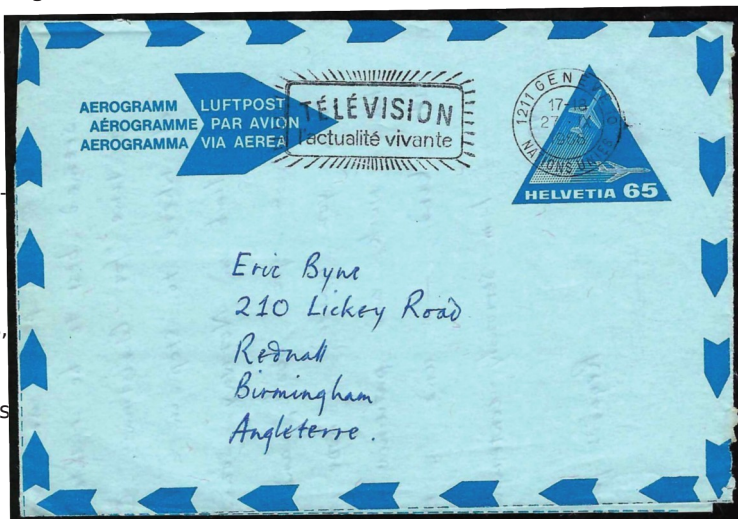 AEROGRAMM
AÉROGRAMME
AEROGRAMMA
LUFTPOST
PAR AVION
VIA AEREA
TÉLÉVISION
l'actualité vivante
1211 GENÈVE
17-18
27
NATIONS UNIES
HELVETIA 65
Eric Byne
210 Lickey Road
Rednall
Birmingham
Angleterre.